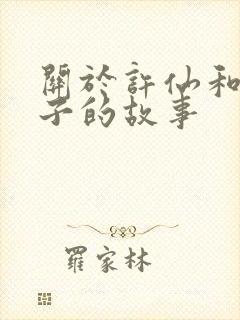 關於許仙和
子的故事
羅家林